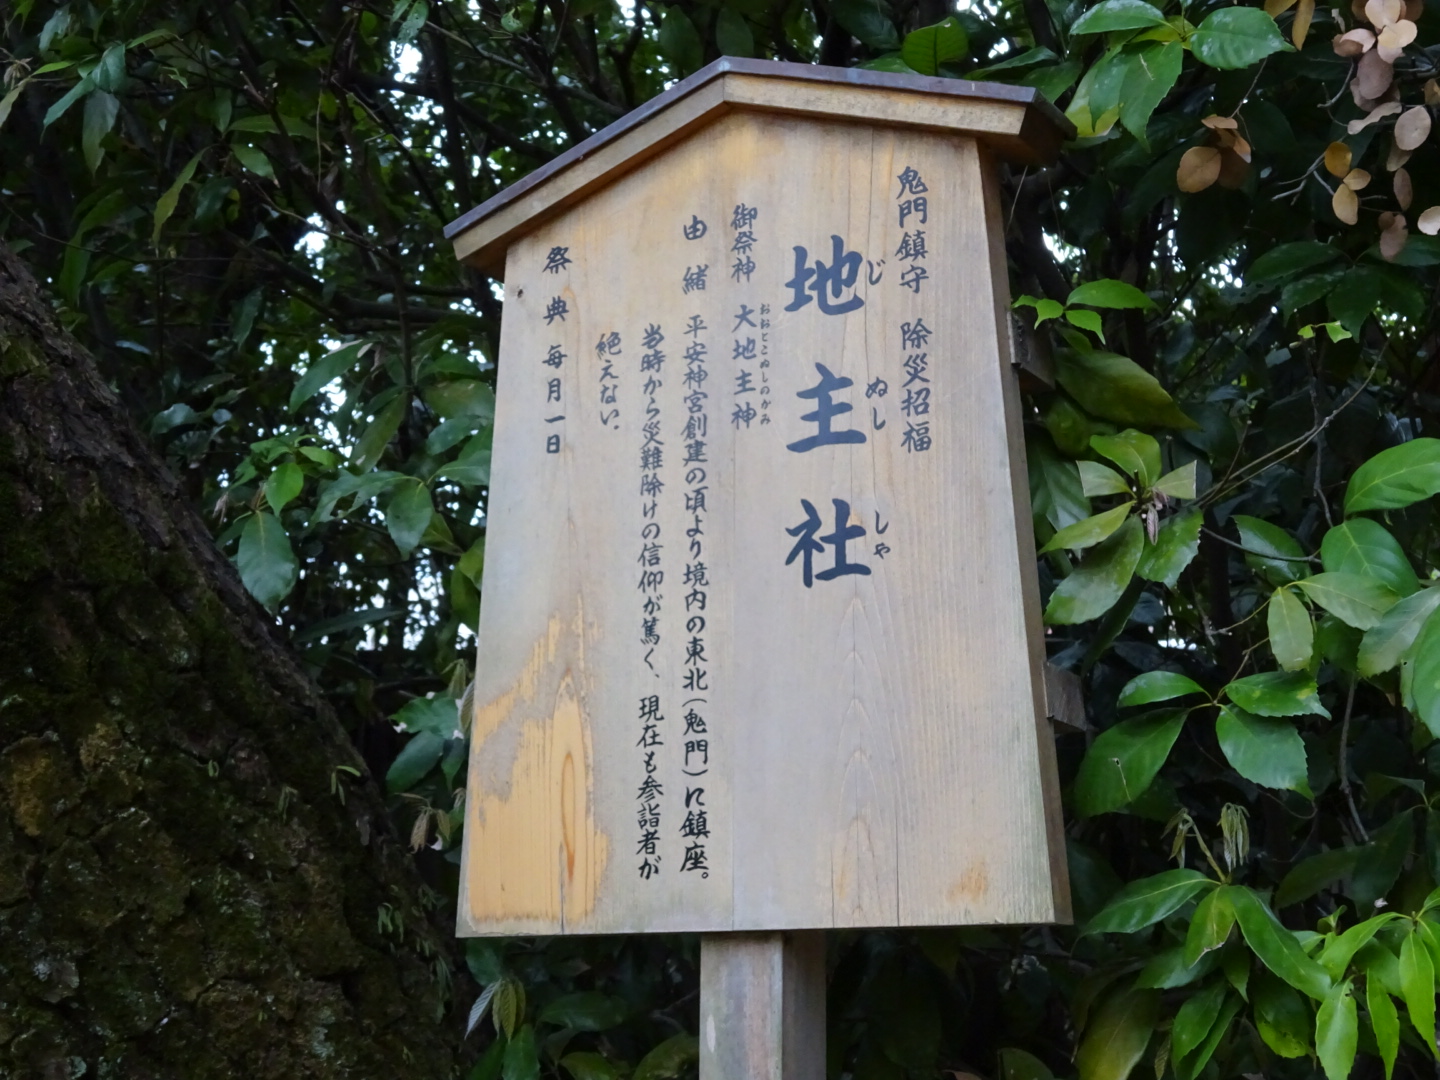 鬼門鎮守 除災招福
地主社
じ ぬし しゃ
御祭神 大地主神
おおとこぬしのかみ
由緒 平安神宮創建の頃より境内の東北(鬼門)に鎮座。
当時から災難除けの信仰が篤く、現在も参詣者が
絶えない。
祭典 毎月一日